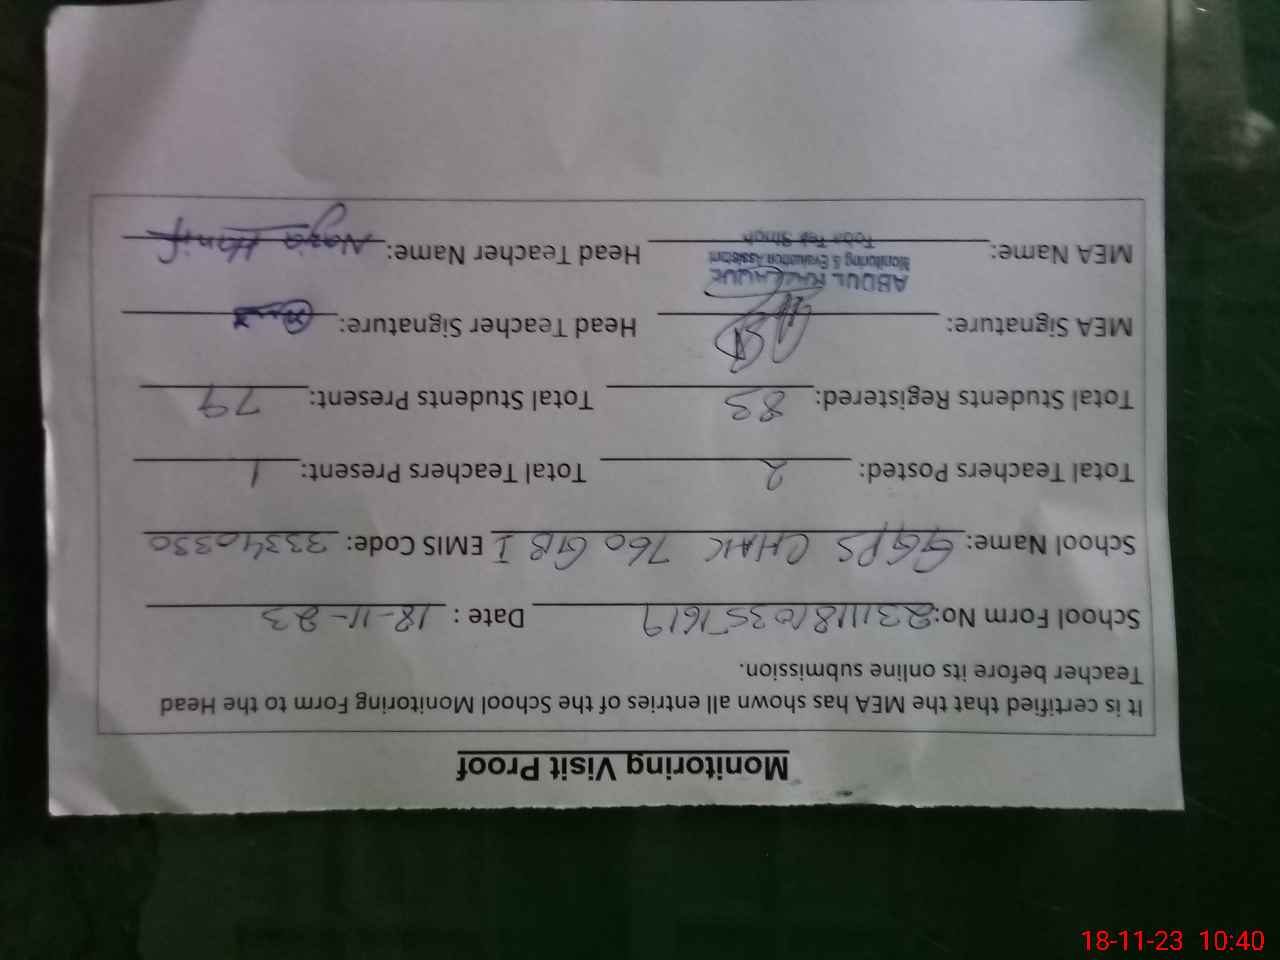 Monitoring Visit Proof
It is certified that the MEA has shown all entries of the School Monitoring Form to the Head
Teacher before its online submission.
School Form No: 231118103571619 Date : 18-11-23
School Name: GGPS CHAK 760 GB I EMIS Code: 33340330
Total Teachers Posted: 2 Total Teachers Present: 1
Total Students Registered: 83 Total Students Present: 79
MEA Signature: Head Teacher Signature:
ABDUL RAZZAQUE
Monitoring & Evaluation Assistant
Toba Tek Singh
MEA Name: Head Teacher Name: Nazia Hanif
18-11-23 10:40